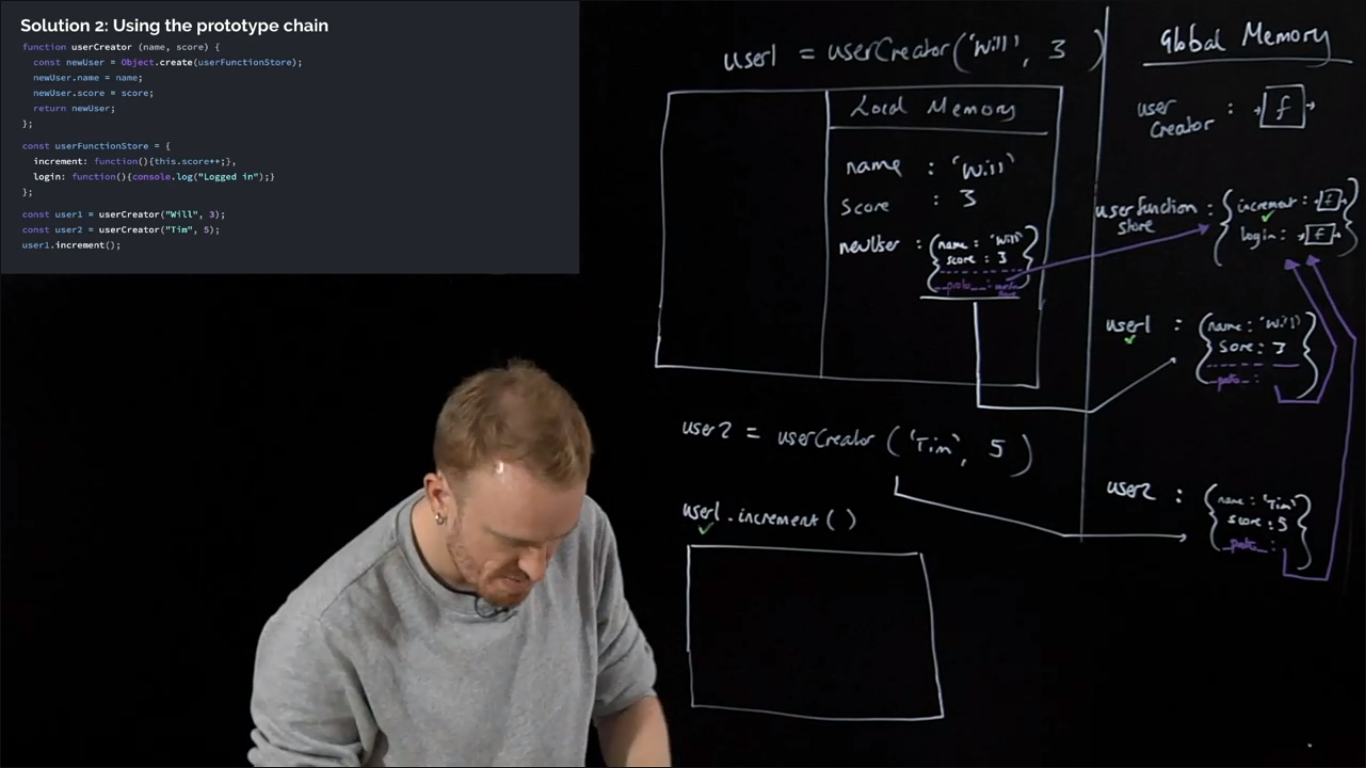 Solution 2: Using the prototype chain
function userCreator (name, score) {
const newUser = Object.create(userFunctionStore);
newUser.name = name;
newUser.score = score;
return newUser;
};
const userFunctionStore = {
increment: function(){this.score++;},
login: function(){console.log("Logged in");}
};
const user1 = userCreator("Will", 3);
const user2 = userCreator("Tim", 5);
user1.increment();
user1 = userCreator('Will', 3)
Local Memory
name : 'Will'
score : 3
newUser : {name : 'Will'
score : 3
__proto__ :
}
user2 = userCreator('Tim', 5)
user1.increment()
Global Memory
user
Creator : f
userfunction
store : {increment : f
login : f}
user1 : {name : 'Will'
Score : 3
__proto__ :
}
user2 : {name : 'Tim'
score : 5
__proto__ :
}